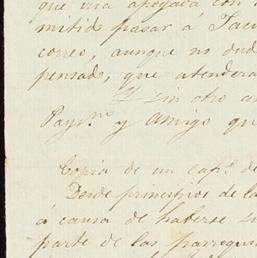 que una apoyada con
mitido pasar á Tacu
correo, aunque no dud
pensado, que atendera
Y sin otro a
Pays.no y Amigo qu
Copia de un cap.o de
Desde principios de la
á causa de haberse su
parte de las parroqu